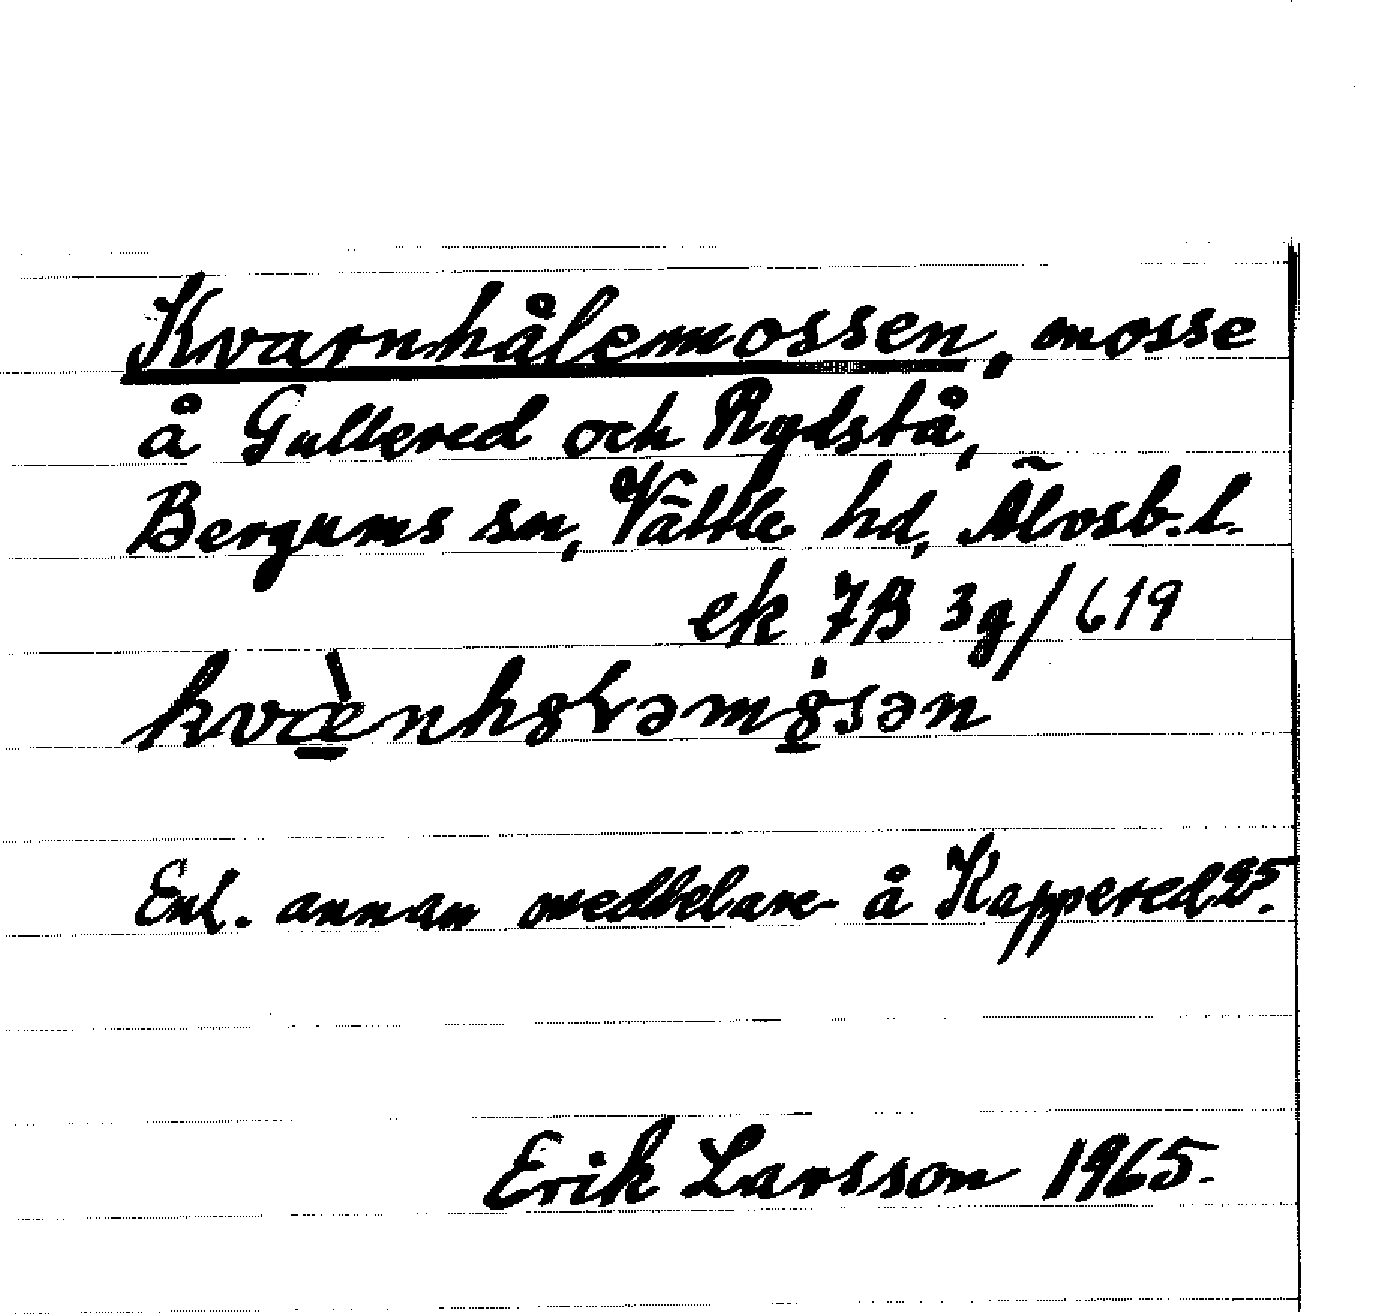 Kvarnhålemossen, mosse
å Gullered och Rydstå,
Bergums sn, Vättle hd, Älvsb. l.
ek 7B 3g/619
Enl. annan meddelare å Kappered 25.
Erik Larsson 1965.